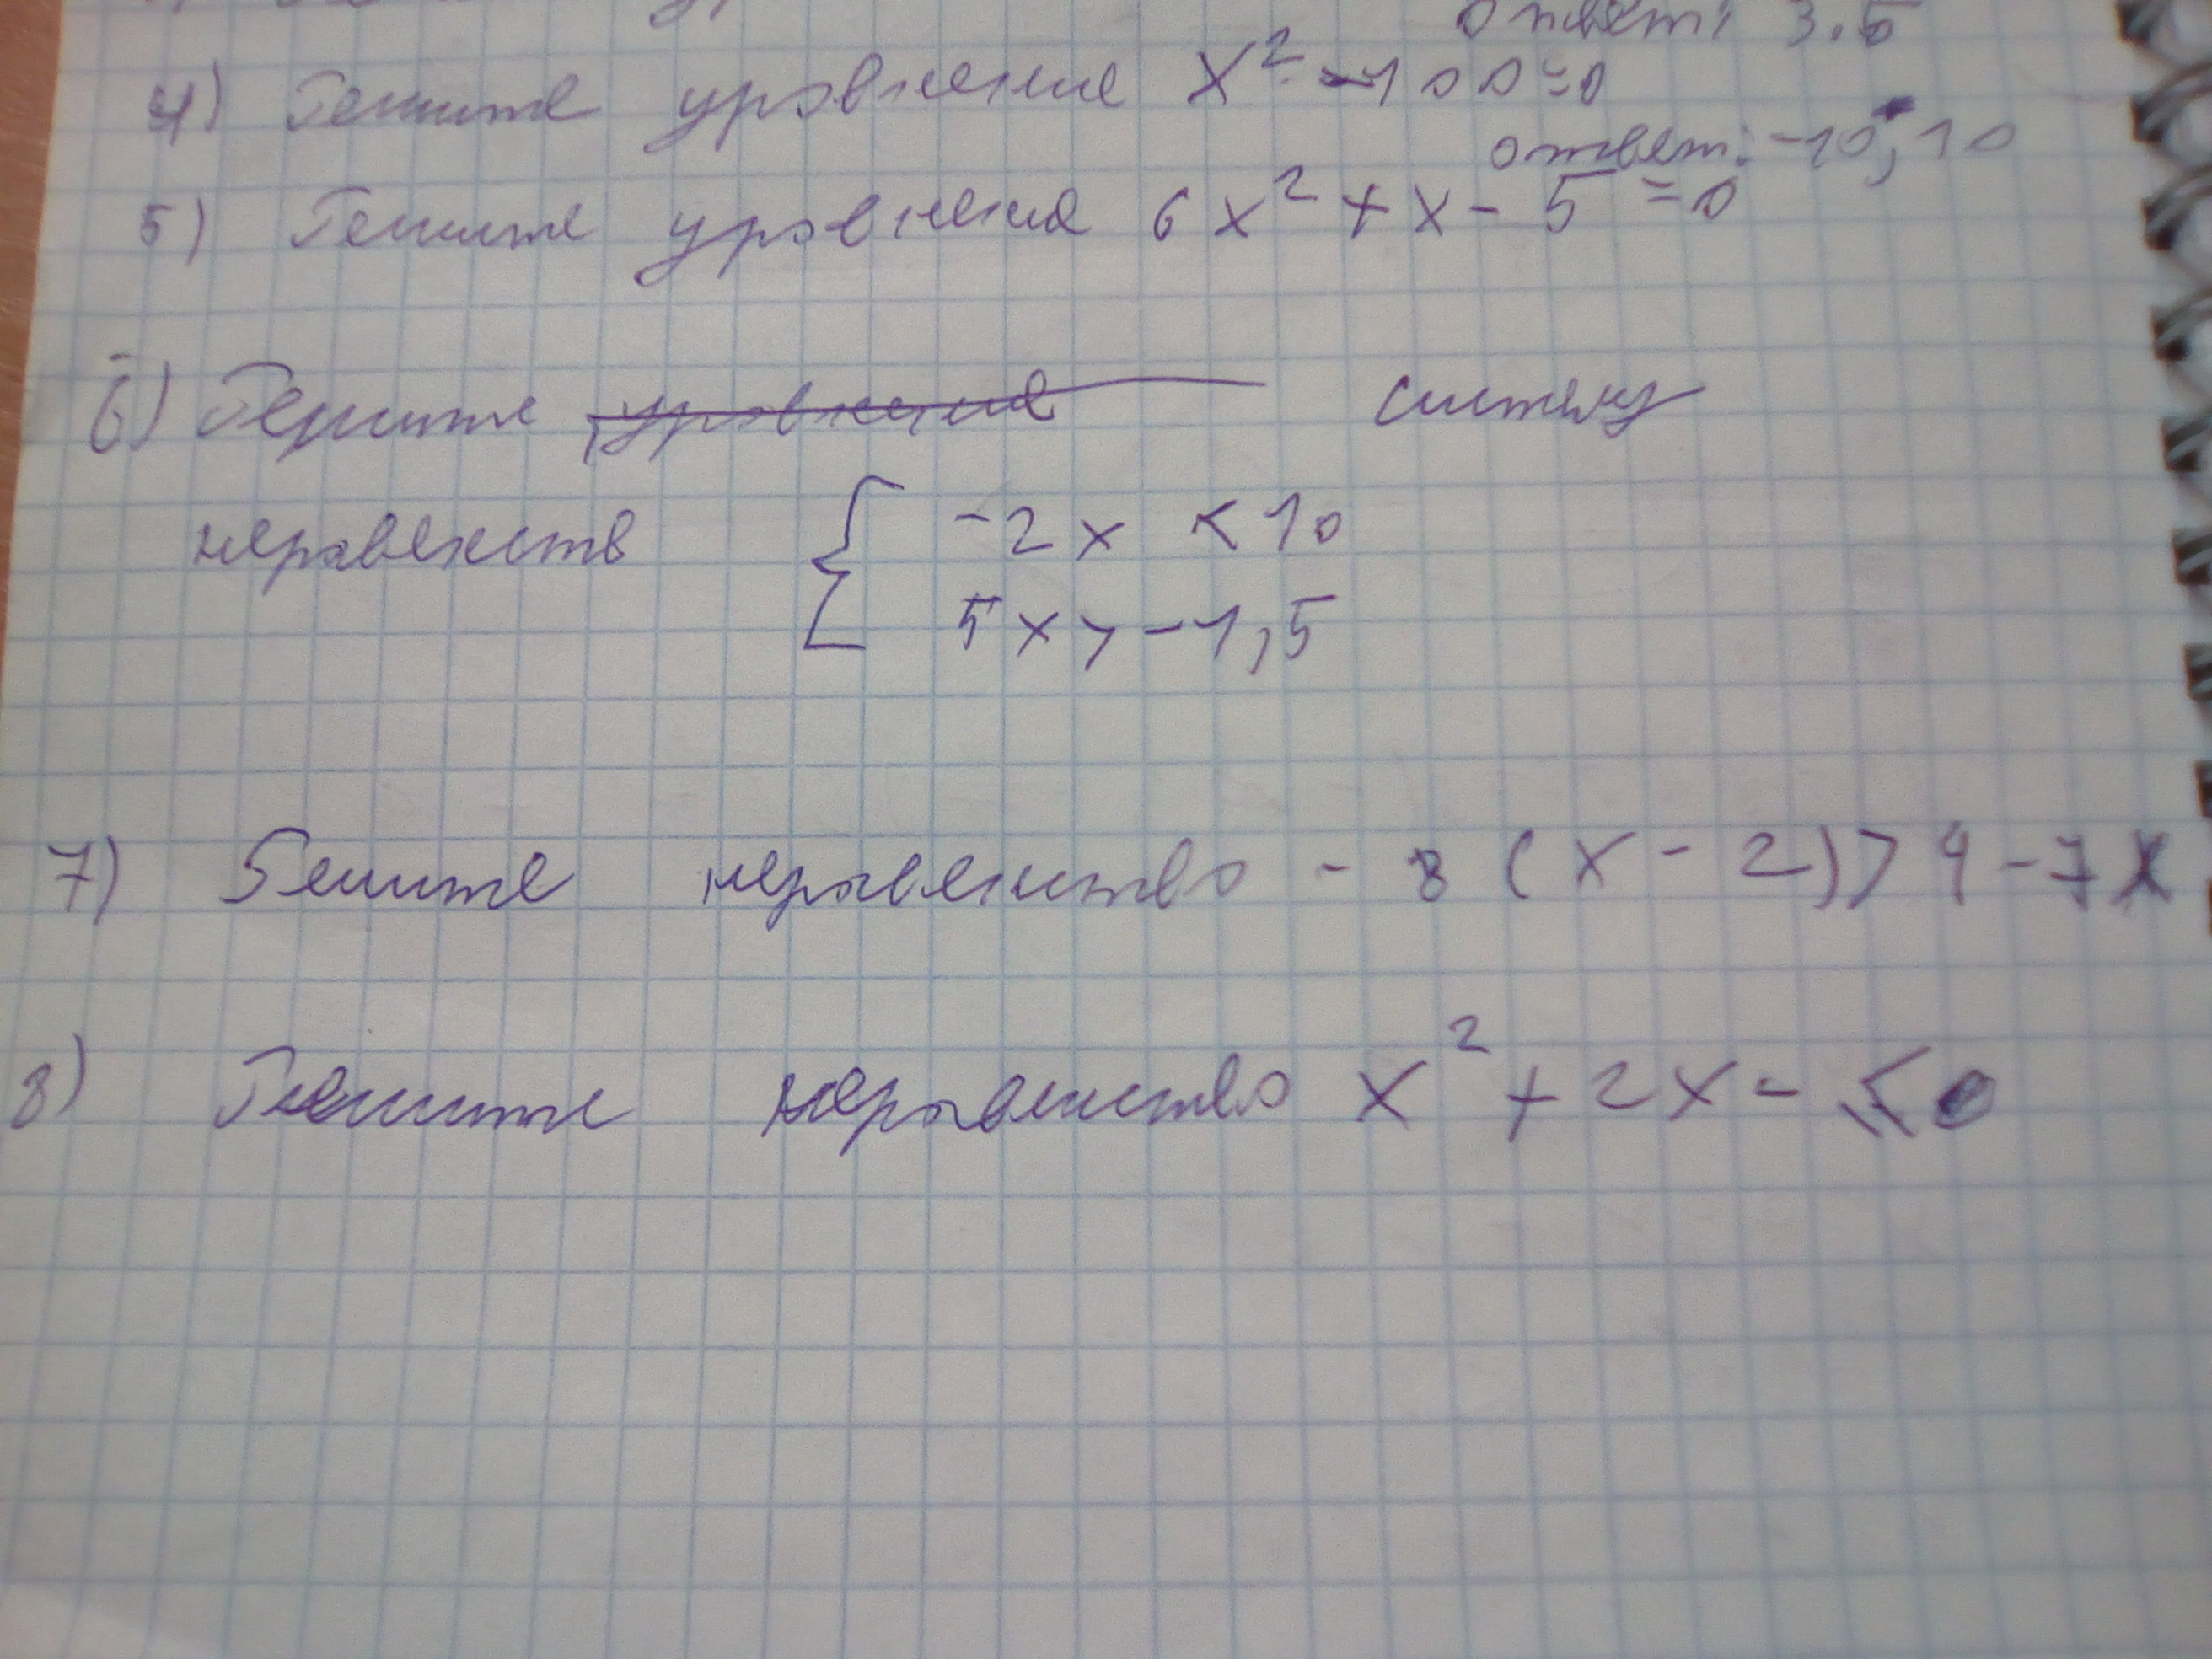 ответ: 3.5
4) Решите уровнение x² -100=0
ответ: -10, 10
5) Решите уровнения 6x² + x - 5 = 0
6) Решите уровнение систему
неравенств { -2x < 10
5x > -1,5
7) Решите неравенство - 8 (x - 2) > 4 - 7x
8) Решите неравенство x² + 2x - ≤ 0